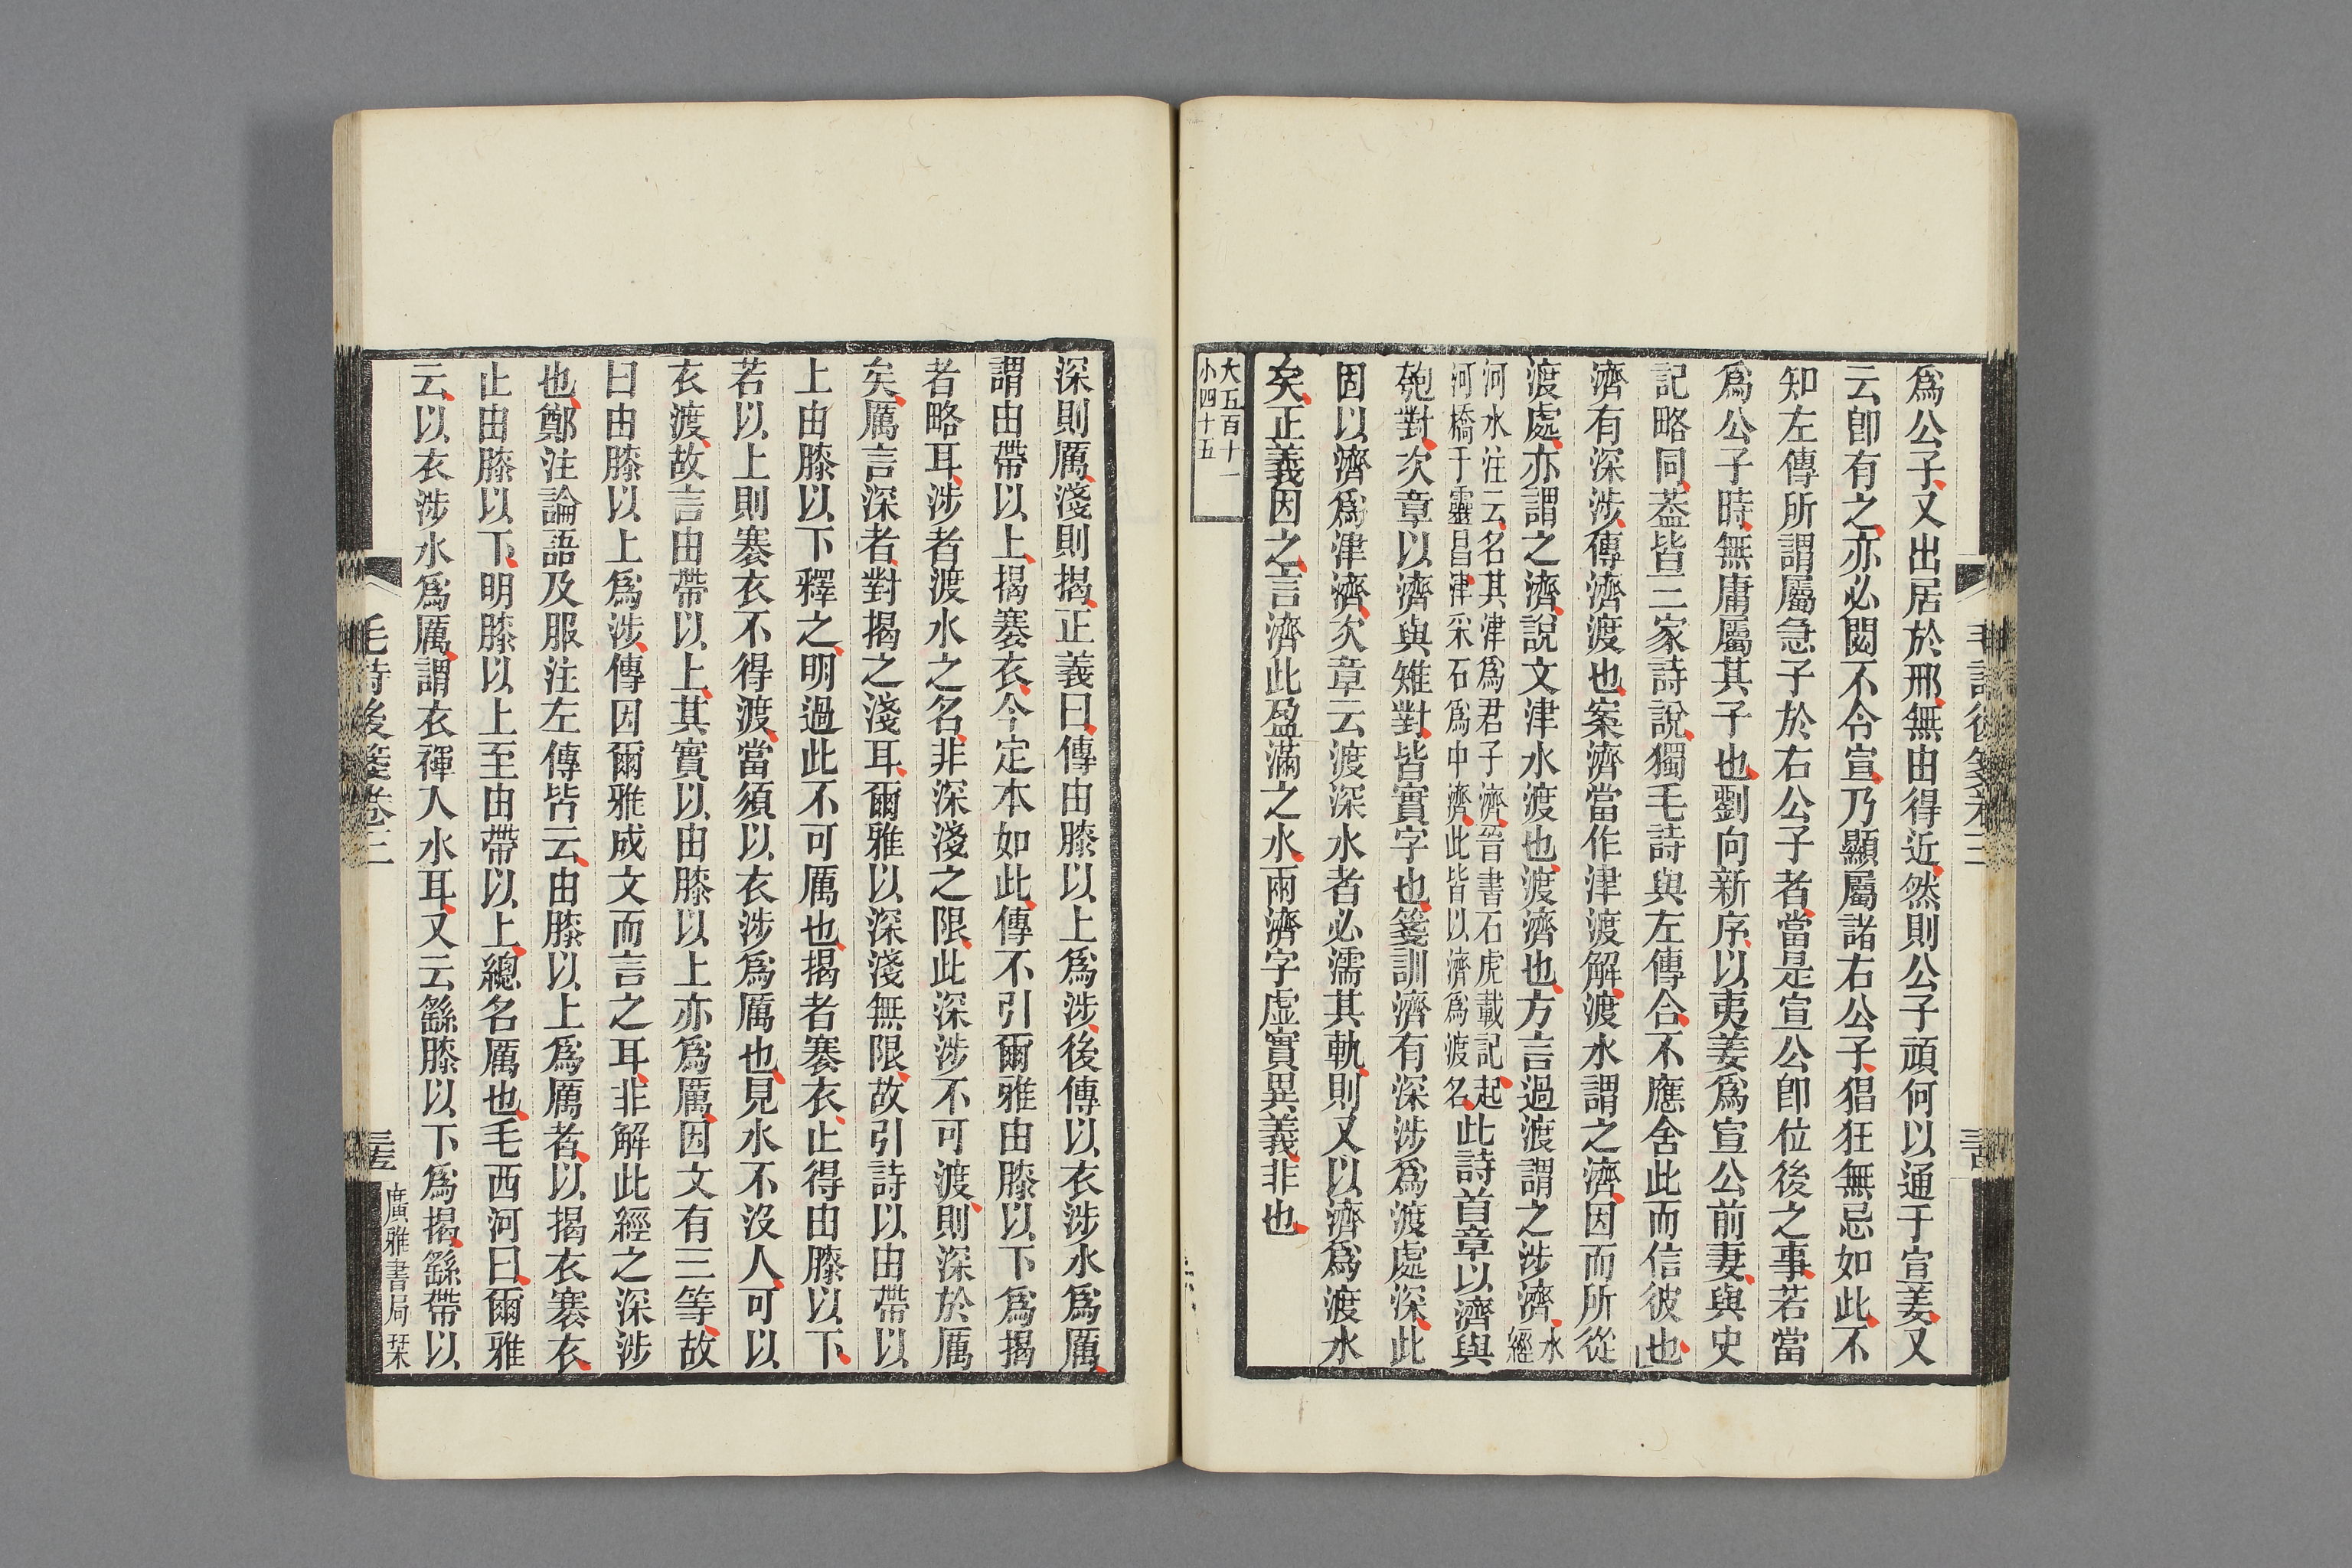 爲公子又出居於邢無由得近然則公子頑何以通于宣姜又
云卽有之亦必閟不令宣乃顯屬諸右公子猖狂無忌如此不
知左傳所謂屬急子於右公子者當是宣公卽位後之事若當
爲公子時無庸屬其子也劉向新序以夷姜爲宣公前妻與史
記略同葢皆三家詩說獨毛詩與左傳合不應舍此而信彼也
濟有深涉傳濟渡也案濟當作津渡解渡水謂之濟因而所從
渡處亦謂之濟說文津水渡也渡濟也方言過渡謂之涉濟水經
河水注云名其津爲君子濟晉書石虎載記起
河橋于靈昌津采石爲中濟此皆以濟爲渡名此詩首章以濟與
匏對次章以濟與雉對皆實字也箋訓濟有深涉爲渡處深此
因以濟爲津濟次章云渡深水者必濡其軌則又以濟爲渡水
矣正義因之言濟此盈滿之水兩濟字虛實異義非也
大五百十一
小四十五
毛詩後箋卷三
深則厲淺則揭正義曰傳由膝以上爲涉後傳以衣涉水爲厲
謂由帶以上揭褰衣今定本如此傳不引爾雅由膝以下爲揭
者略耳涉者渡水之名非深淺之限此深涉不可渡則深於厲
矣厲言深者對揭之淺耳爾雅以深淺無限故引詩以由帶以
上由膝以下釋之明過此不可厲也揭者褰衣止得由膝以下
若以上則褰衣不得渡當須以衣涉爲厲也見水不沒人可以
衣渡故言由帶以上其實以由膝以上亦爲厲因文有三等故
曰由膝以上爲涉傳因爾雅成文而言之耳非解此經之深涉
也鄭注論語及服注左傳皆云由膝以上爲厲者以揭衣褰衣
止由膝以下明膝以上至由帶以上總名厲也毛西河曰爾雅
云以衣涉水爲厲謂衣褌入水耳又云繇膝以下爲揭繇帶以
毛詩後箋卷三
廣雅書局栞